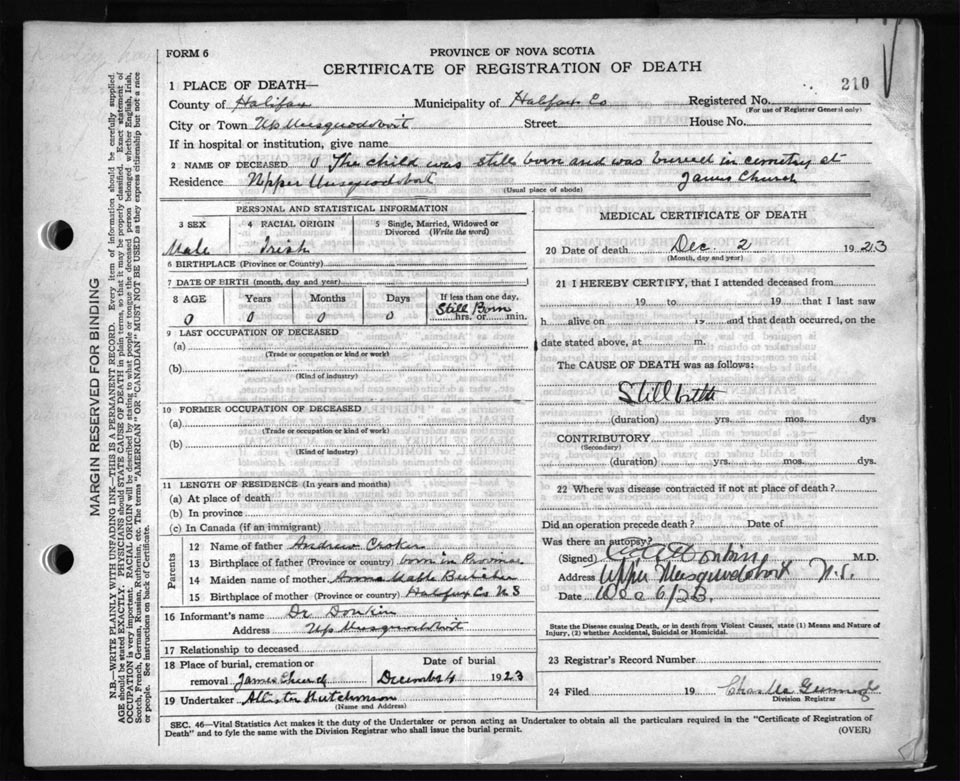 FORM 6
PROVINCE OF NOVA SCOTIA
CERTIFICATE OF REGISTRATION OF DEATH
210
1 PLACE OF DEATH—
County of Halifax Municipality of Halifax Co Registered No.
(For use of Registrar General only)
City or Town Up Musquodoboit Street House No.
If in hospital or institution, give name
2 NAME OF DECEASED The child was still born and was buried in cemetry at
Residence Upper Musquodoboit James Church
(Usual place of abode)
PERSONAL AND STATISTICAL INFORMATION
3 SEX 4 RACIAL ORIGIN 5 Single, Married, Widowed or Divorced (Write the word)
Male Irish
6 BIRTHPLACE (Province or Country)
7 DATE OF BIRTH (month, day and year)
8 AGE Years Months Days If less than one day,
Still Born
0 0 0 0 hrs. or min.
9 LAST OCCUPATION OF DECEASED
(a)
(Trade or occupation or kind or work)
(b)
(Kind of industry)
10 FORMER OCCUPATION OF DECEASED
(a)
(Trade or occupation or kind of work)
(b)
(Kind of industry)
11 LENGTH OF RESIDENCE (In years and months)
(a) At place of death
(b) In province
(c) In Canada (if an immigrant)
Parents
12 Name of father Andrew Croker
13 Birthplace of father (Province or country) born in Province
14 Maiden name of mother Anna Mable
15 Birthplace of mother (Province or country) Halifax Co N S
16 Informant's name Dr Donkin
Address Up Musquodoboit
17 Relationship to deceased
18 Place of burial, cremation or Date of burial
removal James Church December 4 1923
19 Undertaker Hutchinson
(Name and Address)
MEDICAL CERTIFICATE OF DEATH
20 Date of death Dec. 2 1923
(Month, day and year)
21 I HEREBY CERTIFY, that I attended deceased from
19 to 19 that I last saw
h alive on 19 and that death occurred, on the
date stated above, at m.
The CAUSE OF DEATH was as follows:
Stillbirth
(duration) yrs. mos. dys
CONTRIBUTORY
(Secondary)
(duration) yrs. mos. dys.
22 Where was disease contracted if not at place of death?
Did an operation precede death? Date of
Was there an autopsy?
(Signed) Donkin M.D.
Address Upper Musquodoboit N.S.
Date Dec 6/23.
State the Disease causing Death, or in death from Violent Causes, state (1) Means and Nature of
Injury, (2) whether Accidental, Suicidal or Homicidal.
23 Registrar's Record Number
24 Filed 19
Division Registrar
SEC. 46—Vital Statistics Act makes it the duty of the Undertaker or person acting as Undertaker to obtain all the particulars required in the "Certificate of Registration of
Death" and to fyle the same with the Division Registrar who shall issue the burial permit.
(OVER)
MARGIN RESERVED FOR BINDING
N.B.—WRITE PLAINLY WITH UNFADING INK—THIS IS A PERMANENT RECORD. Every item of information should be carefully supplied.
AGE should be stated EXACTLY. PHYSICIANS should STATE CAUSE OF DEATH in plain terms, so that it may be properly classified. Exact statement of
OCCUPATION is very important. RACIAL ORIGIN will be described by stating to what people or tongue the deceased person belonged whether English, Irish,
Scotch, French, German, Russian, Ruthenian, etc. The terms "AMERICAN" OR "CANADIAN" MUST NOT BE USED as they express citizenship but not a race
or people. See instructions on back of Certificate.